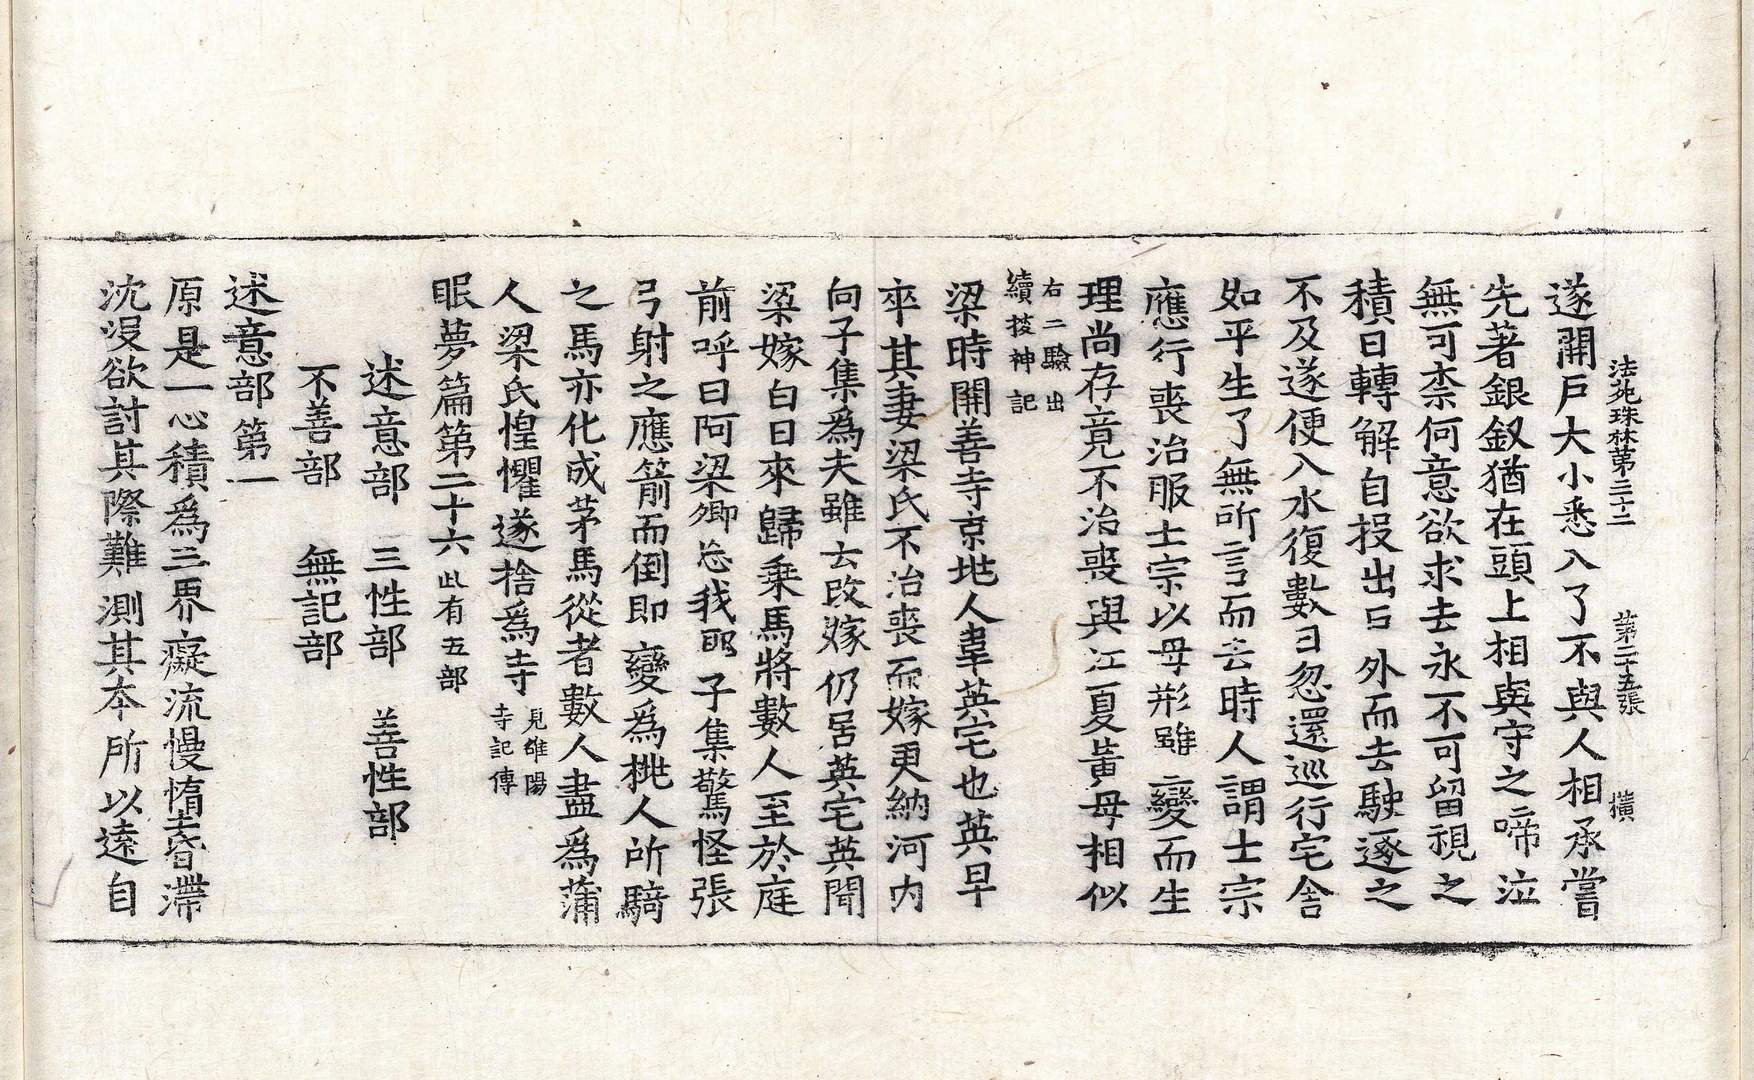 法苑珠林第三十二 第二十五張 橫
遂開戶大小悉入了不與人相承嘗
先著銀釵猶在頭上相與守之啼泣
無可柰何意欲求去永不可留視之
積日轉解自投出戶外而去駛逐之
不及遂便入水復數日忽還巡行宅舍
如平生了無所言而去時人謂士宗
應行喪治服士宗以母形雖變而生
理尚存竟不治喪與江夏黃母相似
右二驗出
續搜神記
梁時開善寺京地人韋英宅也英早
卒其妻梁氏不治喪而嫁更納河內
向子集爲夫雖去改嫁仍居英宅英聞
梁嫁白日來歸乗馬將數人至於庭
前呼曰阿梁卿忘我耶子集驚怪張
弓射之應箭而倒即變爲桃人所騎
之馬亦化成茅馬從者數人盡爲蒲
人梁氏惶懼遂捨爲寺 見雒陽
寺記傳
眠夢篇第二十六 此有五部
述意部 三性部 善性部
不善部 無記部
述意部第一
原是一心積爲三界癡流慢惰昬滯
沈沒欲討其際難測其本所以遠自